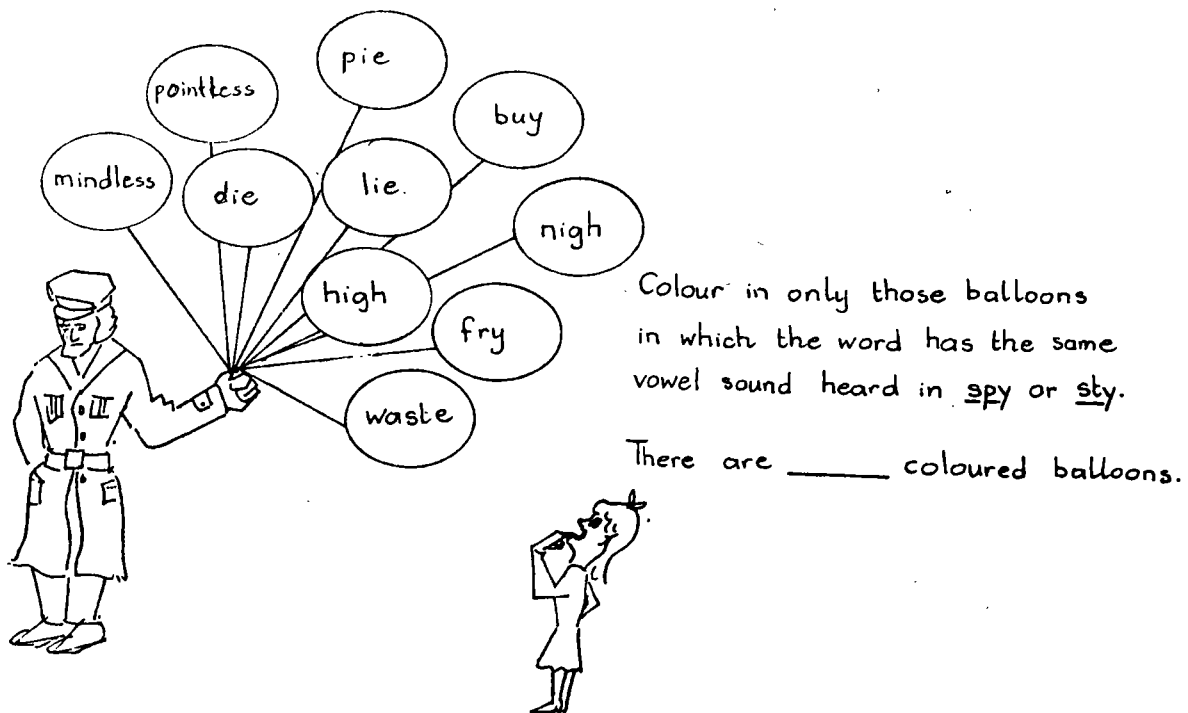 pie
pointless
buy
mindless
die
lie.
nigh
high
fry
waste
Colour in only those balloons
in which the word has the same
vowel sound heard in spy or sty.
There are ______ coloured balloons.